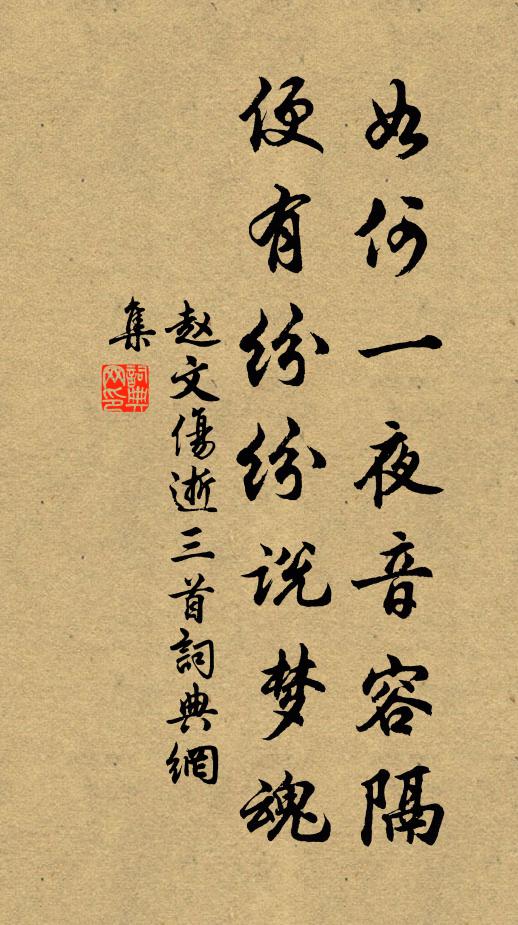 如何一夜音容隔
便有纷纷说梦魂
赵文傷逝三首詞典網
集
詞典网印